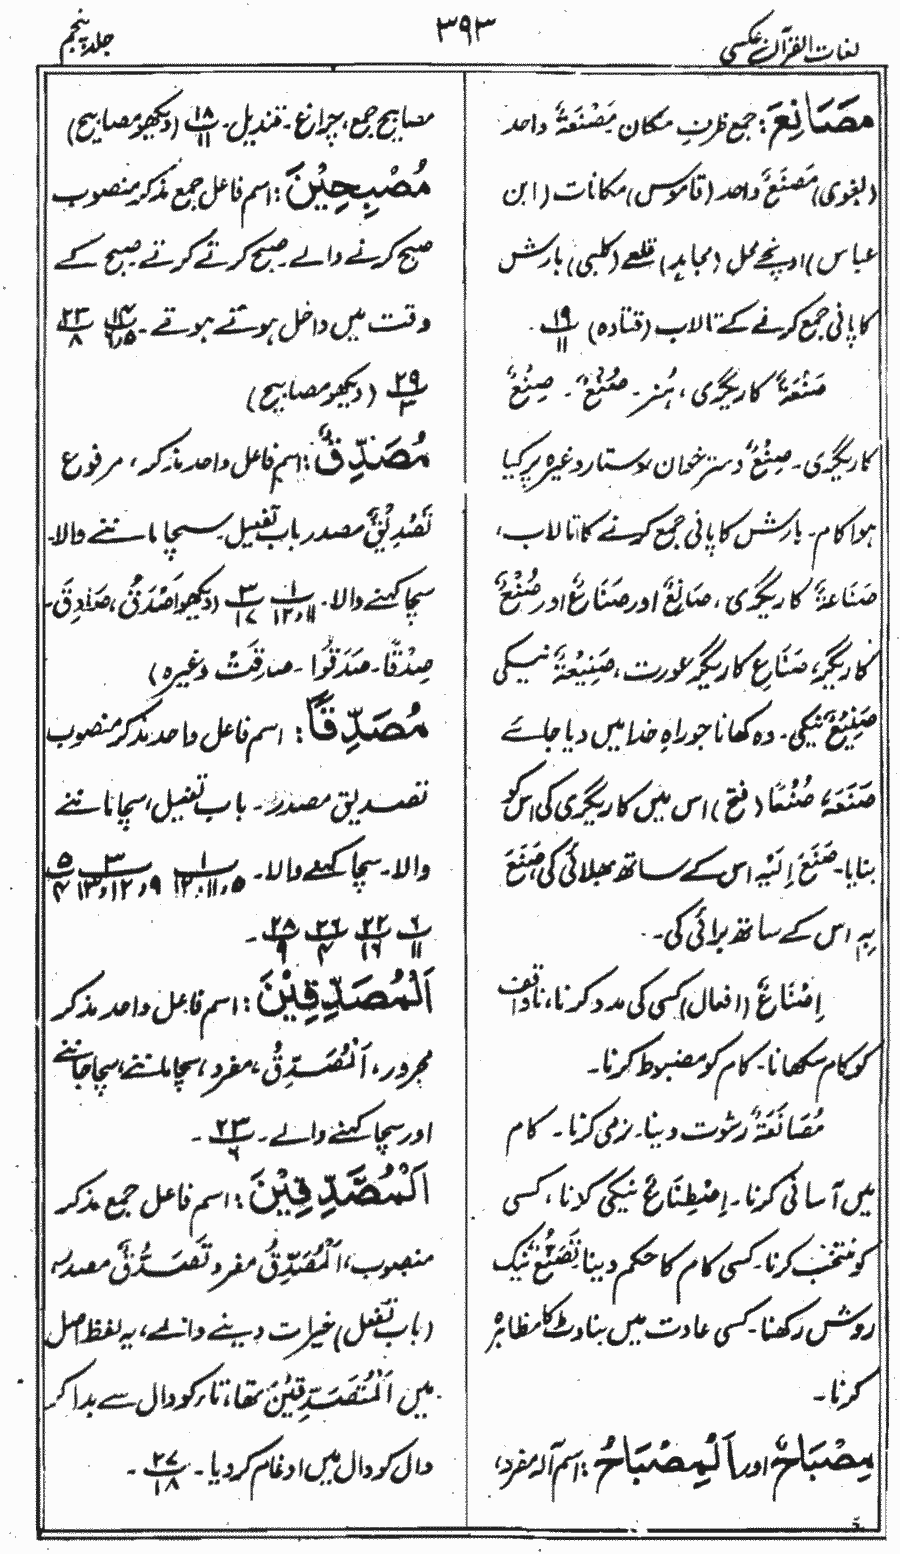 لغات القرآن عکسی
۳۹۳
جلد پنجم
مَصَانِعَ: جمع ظرفِ مکان مَصْنَعَۃٌ واحد
(لغوی) مَصْنَعٌ واحد (قاموس) مکانات (ابن
عباس) اونچے محل (مجاہد) قلعے (کلبی) بارش
کا پانی جمع کرنے کے تالاب (قتادہ) ۱۹/۱۱
صَنْعَۃٌ کاریگری، ہُنر۔ صُنْعٌ۔ صِنْعٌ
کاریگری۔ صِنْعٌ دسترخوان دستار وغیرہ پر کیا
ہوا کام۔ بارش کا پانی جمع کرنے کا تالاب،
صَنَاعَۃٌ کاریگری، صَانِعٌ اور صَنَاعٌ اور صُنْعٌ
کاریگر، صَنَاعِ کاریگر عورت، صَنِیْعَۃٌ نیکی
صَنِیْعٌ نیکی۔ وہ کھانا جو راہِ خدا میں دیا جائے
صَنَعَہٗ صُنْعًا (فتح) اس میں کاریگری کی اس کو
بنایا۔ صَنَعَ اِلَیْہِ اس کے ساتھ بھلائی کی، صَنَعَ
بِہٖ اس کے ساتھ برائی کی۔
اِصْنَاعٌ (افعال) کسی کی مدد کرنا، ناواقف
کو کام سکھانا۔ کام کو مضبوط کرنا۔
مُصَانَعَۃٌ رشوت دینا۔ نرمی کرنا۔ کام
میں آسانی کرنا۔ اِصْطِنَاعٌ نیکی کرنا، کسی
کو منتخب کرنا۔ کسی کام کا حکم دینا تَصَنُّعٌ نیک
روش رکھنا۔ کسی عادت میں بناوٹ کا مظاہرہ
کرنا۔
مِصْبَاحٌ اور اَلْمِصْبَاحُ: اسم آلہ مفرد،
مصابیح جمع، چراغ۔ قندیل۔ ۱۸/۱۱ (دیکھو مصابیح)
مُصْبِحِیْنَ: اسم فاعل جمع مذکر منصوب
صبح کرنے والے۔ صبح کرتے کرتے صبح کے
وقت میں داخل ہوتے ہوتے۔ ۱۴/۵،۶ ۲۳/۸
۲۹/۳ (دیکھو مصابیح)
مُصَدِّقٌ: اسم فاعل واحد مذکر، مرفوع
تَصْدِیْقٌ مصدر باب تفعیل۔ سچا ماننے والا۔
سچا کہنے والا۔ ۱/۱۱،۱۲ ۳/۱۷ (دیکھو اَصْدَقُ، صَادِقَ،
صِدْقًا۔ صَدَقُوا۔ صَدَقَتْ وغیرہ)
مُصَدِّقًا: اسم فاعل واحد مذکر منصوب
تصدیق مصدر۔ باب تفعیل، سچا ماننے
والا۔ سچا کہنے والا۔ ۱/۵،۱۱،۱۲ ۳/۹،۱۲،۱۳ ۵/۴
۶/۱۱ ۲۲/۱۶ ۲۶/۴ ۲۸/۹۔
اَلْمُصَدِّقِیْنَ: اسم فاعل واحد مذکر
مجرور، اَلْمُصَدِّقُ، مفرد، سچا ماننے، سچا جاننے
اور سچا کہنے والے۔ ۲۳/۶۔
اَلْمُصَّدِّقِیْنَ: اسم فاعل جمع مذکر
منصوب، اَلْمُصَّدِّقُ مفرد تَصَدُّقٌ مصدر
(باب تفعل) خیرات دینے والے، یہ لفظ اصل
میں اَلْمُتَصَدِّقِیْنَ تھا، تاء کو دال سے بدل کر
دال کو دال میں ادغام کر دیا۔ ۲۷/۱۸۔